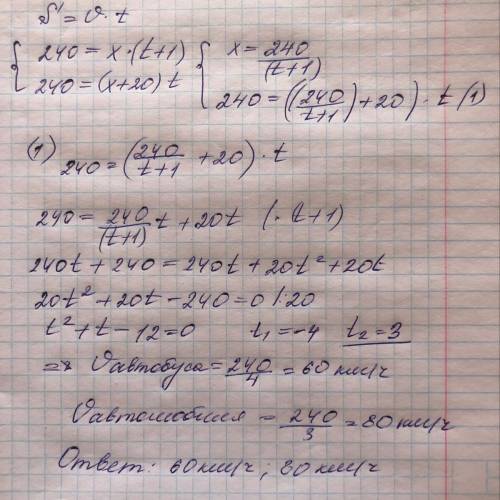 S = v · t
{ 240 = x · (t+1) { x = 240/(t+1)
240 = (x+20) t 240 = ((240/t+1) + 20) · t (1)
(1) 240 = (240/t+1 + 20) · t
240 = 240/(t+1) t + 20t (· t+1)
240t + 240 = 240t + 20t² + 20t
20t² + 20t - 240 = 0 |:20
t² + t - 12 = 0 t₁ = -4 t₂ = 3
=> Vавтобуса = 240/4 = 60 км/ч
Vавтомобиля = 240/3 = 80 км/ч
Ответ: 60 км/ч ; 80 км/ч